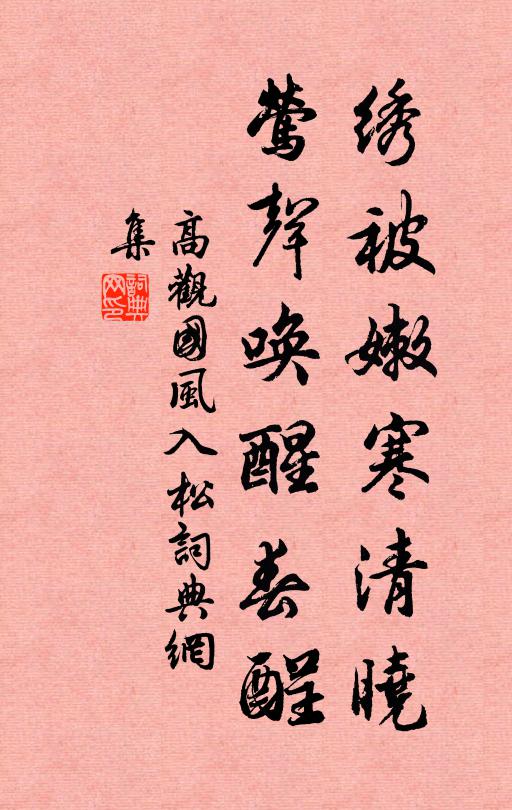 绣被嫩寒清曉
鶯聲喚醒春酲
高觀國風入松詞典網
集
詞典網印